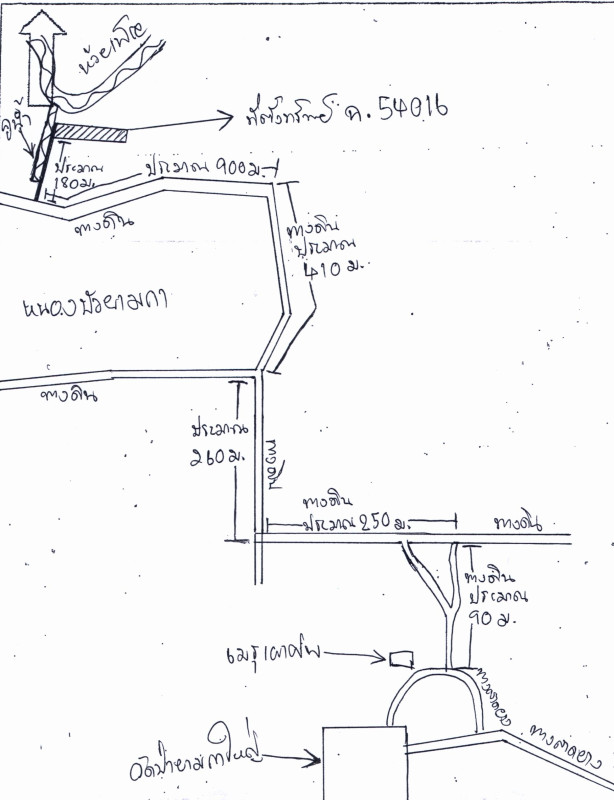 ห้วยเพีย
คูน้ำ
ที่ตั้งทรัพย์ ฉ. 54016
ประมาณ
180 ม.
ประมาณ 900 ม.
ทางดิน
ทางดิน
ประมาณ
410 ม.
หนองบัวยามกา
ทางดิน
ประมาณ
260 ม.
ทางดิน
ประมาณ 250 ม.
ทางดิน
ทางดิน
ประมาณ
90 ม.
เมรุเผาศพ
ทางลาดยาง
ทางลาดยาง
วัดป่ายามกาใหญ่